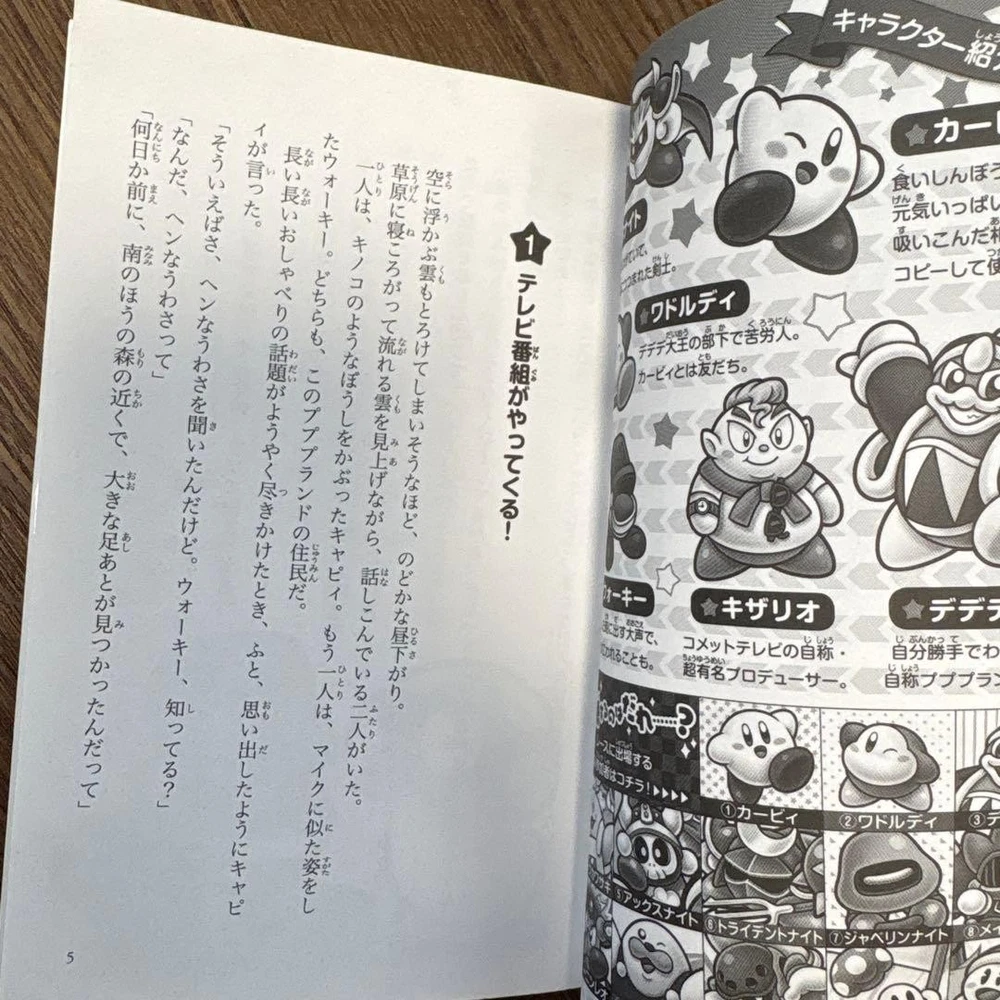 キャラクター紹
カービ
食いしんぼう
元気いっぱい
吸いこんだ相
コピーして使
イト
まれた剣士。
ワドルディ
デデデ大王の部下で苦労人。
カービィとは友だち。
ォーキー
に出す大声で、
われることも。
キザリオ
コメットテレビの自称・
超有名プロデューサー。
デデデ
自分勝手でわ
自称プププラン
ースに出場する
者はコチラ!
①カービィ
②ワドルディ
③デ
⑤アックスナイト
⑥トライデントナイト
⑦ジャベリンナイト
⑧メイ
1 テレビ番組がやってくる!
空に浮かぶ雲もとろけてしまいそうなほど、のどかな昼下がり。
草原に寝ころがって流れる雲を見上げながら、話しこんでいる二人がいた。
一人は、キノコのようなぼうしをかぶったキャピィ。もう一人は、マイクに似た姿をし
たウォーキー。どちらも、このプププランドの住民だ。
長い長いおしゃべりの話題がようやく尽きかけたとき、ふと、思い出したようにキャピ
ィが言った。
「そういえばさ、ヘンなうわさを聞いたんだけど。ウォーキー、知ってる?」
「なんだ、ヘンなうわさって」
「何日か前に、南のほうの森の近くで、大きな足あとが見つかったんだって」
5